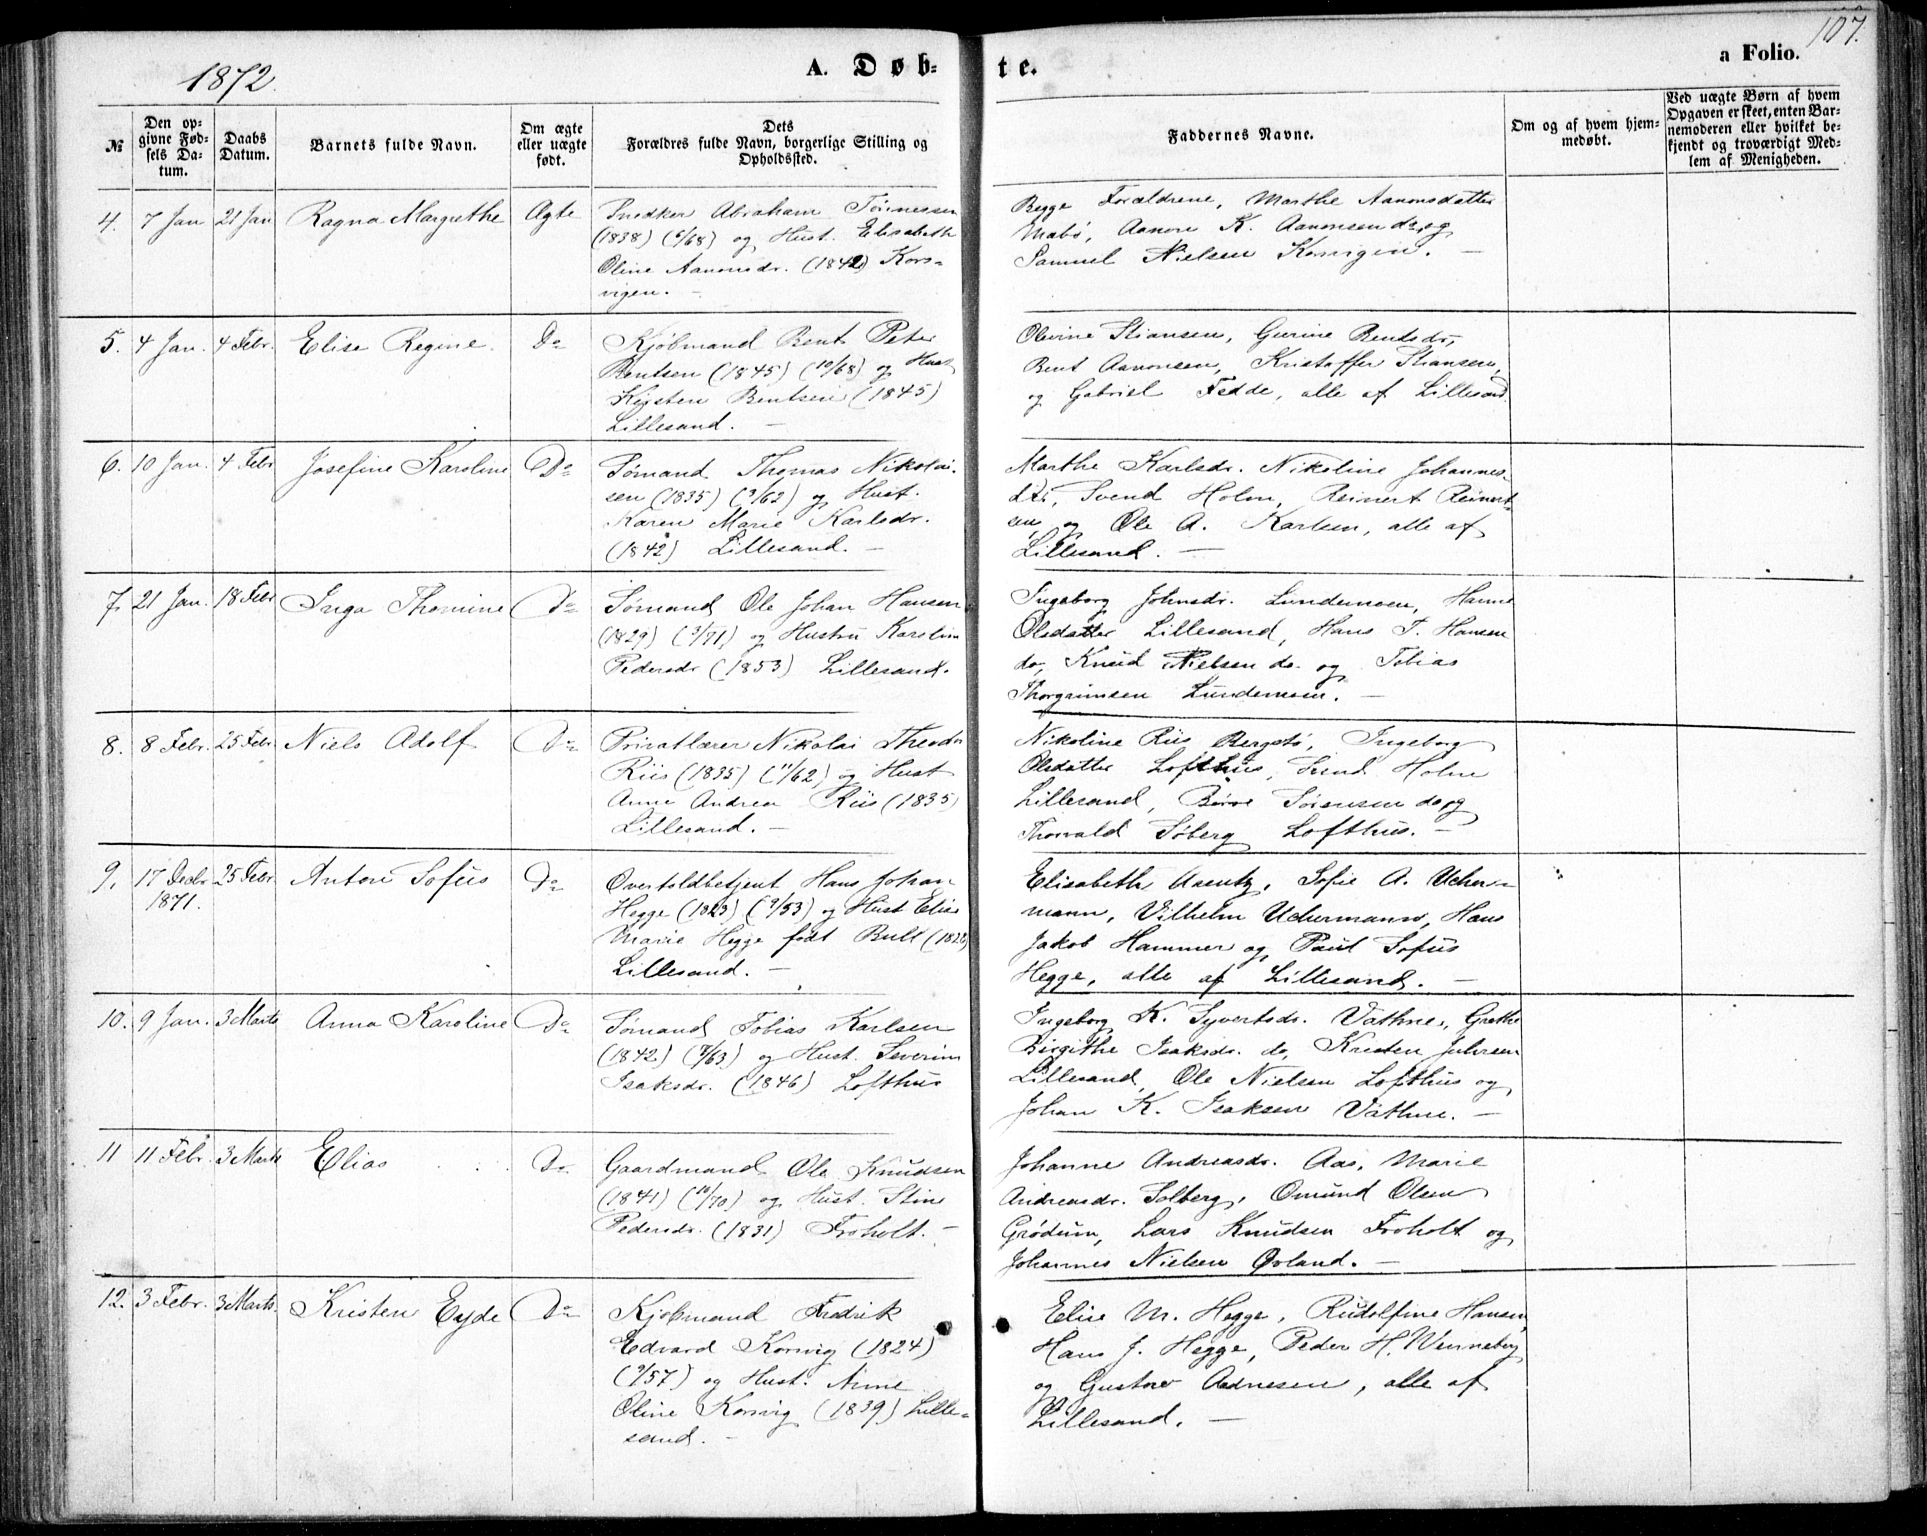 107.
1872.
A. Døb-
te.
a Folio.
№
Den op-
givne Fød-
sels Da-
tum.
Daabs
Datum.
Barnets fulde Navn.
Om ægte
eller uægte
født.
Dets
Forældres fulde Navn, borgerlige Stilling og
Opholdssted.
Faddernes Navne.
Om og af hvem hjem-
medøbt.
Ved uægte Børn af hvem
Opgaven er skeet, enten Bar-
nemoderen eller hvilket be-
kjendt og troværdigt Med-
lem af Menigheden.
4. 7 Jan 21 Jan Ragna Margrethe Ægte
Snedker Abraham Tørnessen
(1838) (6/68) og Hust. Elisabeth
Oline Aanonsdr. (1842) Kors-
vigen. —
Begge Forældrene, Marthe Aanonsdatter
Mabø, Aanon K. Aanonsen do, og
Samuel Nielsen Korsvigen. —
5. 4 Jan. 4 Febr. Elise Regine. Do
Kjøbmand Bent Peter
Bentsen (1845) (10/68) og Hust
Kirsten Bentsen (1845)
Lillesand. —
Olevine Stiansen, Gurine Bentsdr,
Bent Aanonsen, Kristoffer Stiansen,
og Gabriel Fedde, alle af Lillesand.
6. 10 Jan. 4 Febr Josefine Karoline Do
Sømand Thomas Nikolai-
sen (1835) (3/62) og Hust.
Karen Marie Karlsdr.
(1842) Lillesand. —
Marthe Karlsdr. Nikoline Johannes-
dtr, Svend Holm, Reinert Reinert-
sen, og Ole A. Karlsen, alle af
Lillesand. —
7. 21 Jan. 18 Febr Inga Thomine Do
Sømand Ole Johan Hansen
(1829) (3/71) og Hustru Karoline
Pedersdr (1853) Lillesand.
Ingeborg Johnsdr. Lundemoen, Hanne
Olsdatter Lillesand, Hans T. Hansen
do, Knud Nielsen do. og Tobias
Thorgrimsen Lundemoen. —
8. 8 Febr. 25 Febr. Niels Adolf Do
Privatlærer Nikolai Theodor
Riis (1835) (11/62) og Hust
Anne Andrea Riis (1835)
Lillesand. —
Nikoline Riis Bergstø, Ingeborg
Olsdatter Lofthus, Svend Holm
Lillesand, Børre Sørensen do, og
Thorvald Søberg Lofthus. —
9. 17 Decbr 25 Febr. Anton Sofus Do
1871.
Overtoldbetjent Hans Johan
Hegge (1823) (9/53) og Hust Elise
Marie Hegge født Bull (1828)
Lillesand. —
Elisabeth Arentz, Sofie A. Ucher-
mann, Vilhelm Uchermann, Hans
Jakob Hammer og Paul Sofus
Hegge, alle af Lillesand. —
10. 9 Jan. 3 Marts Anna Karoline Do
Sømand Tobias Karlsen
(1842) (8/63) og Hust. Severine
Isaksdr. (1846) Lofthus
Ingeborg K. Syvertsdr. Vathne, Grethe
Birgithe Isaksdr. do, Kristen Juhsen
Lillesand, Ole Nielsen Lofthus og
Johan K. Isaksen Vathne. —
11 11 Febr. 3 Marts Elias Do
Gaardmand Ole Knudsen
(1841) (10/70) og Hust. Stine
Pedersdr. (1831) Froholt. —
Johanne Andreasdr. Aas, Marie
Andreasdr. Solberg, Omund Olsen
Grødum, Lars Knudsen Froholt og
Johannes Nielsen Øvland. —
12. 3 Febr. 3 Marts. Kristen Eyde Do
Kjøbmand Fredrik
Edvard Korsvig (1824)
(9/57) og Hust. Anne
Oline Korsvig (1839) Lille-
sand. —
Elise M. Hegge, Rudolfine Hansen,
Hans J. Hegge, Peder H. Wenneberg
og Gustav Adnesen, alle af
Lillesand. —